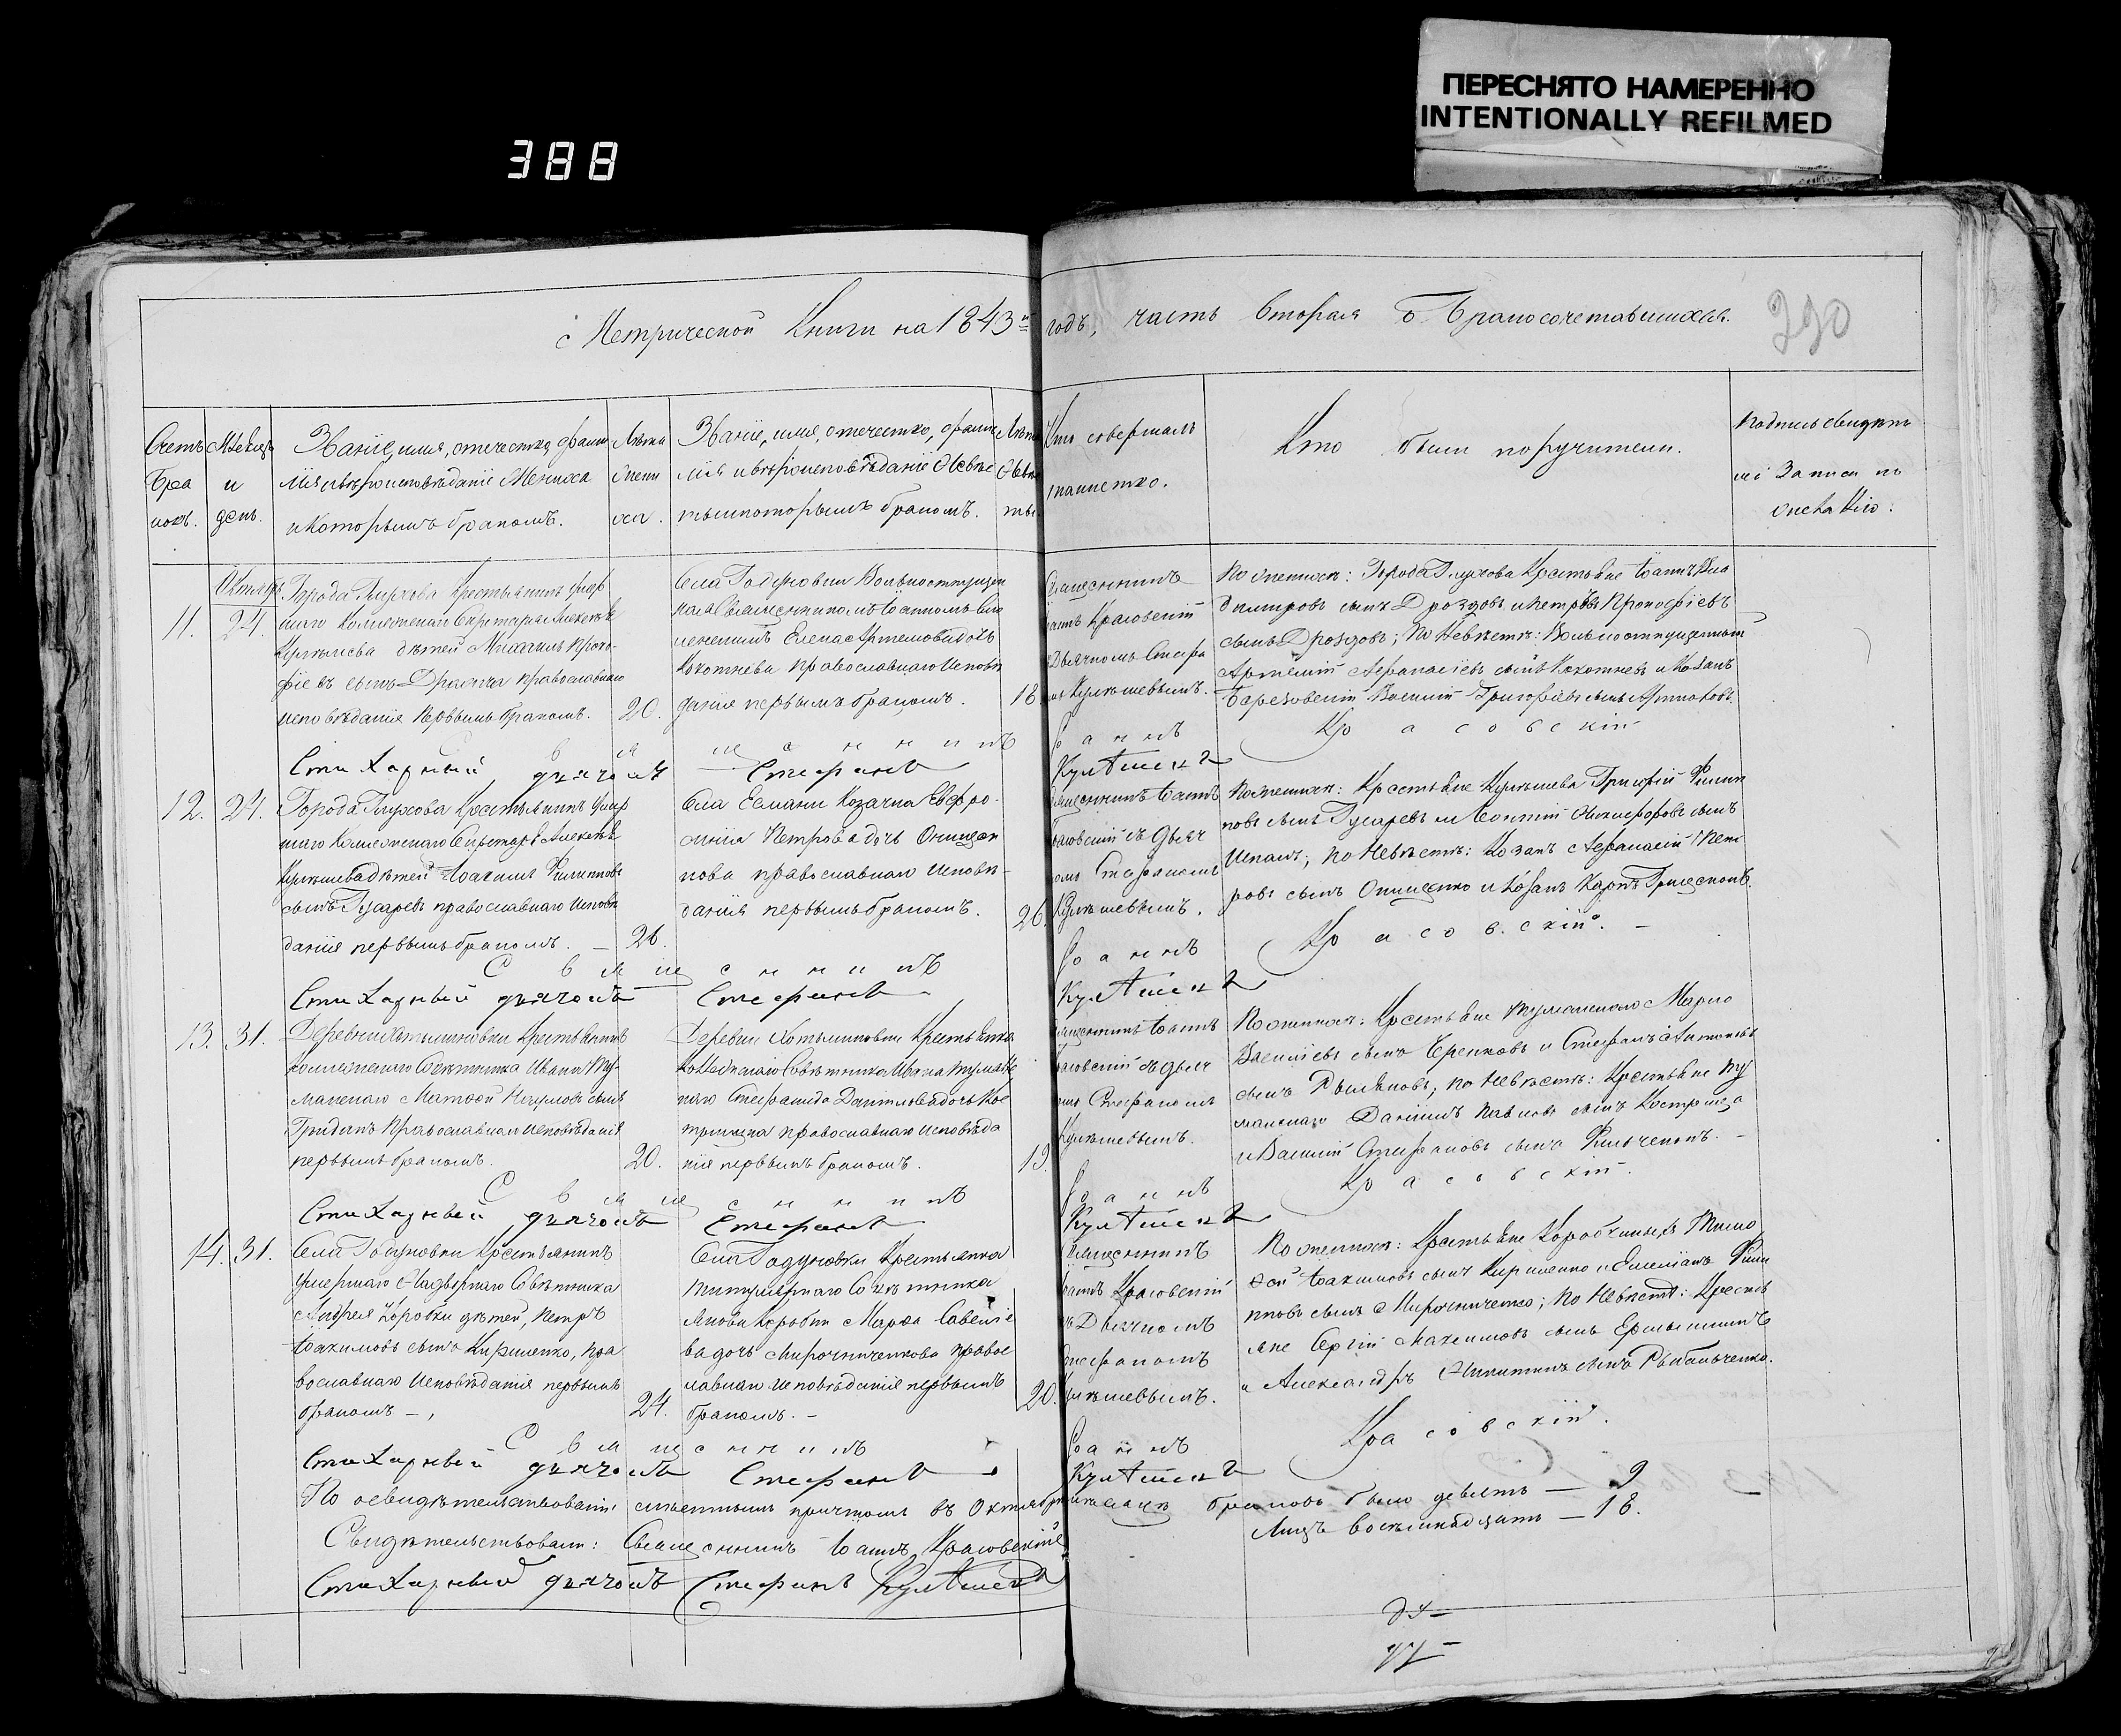 ПЕРЕСНЯТО НАМЕРЕННО
INTENTIONALLY REFILMED
388
Метрической Книги на 1843й годъ, часть вторая о бракосочетавшихся.
290
Счетъ
бра
ковъ.
Мѣсяцъ
и
день.
Званіе, имя, отечество, фами
лія и вѣроисповѣданіе Жениха
и которымъ бракомъ.
Лѣта
Жени
ха.
Званіе, имя, отечество, фами
лія и вѣроисповѣданіе Невѣс
ты и которымъ бракомъ.
Лѣта
Невѣс
ты.
Кто совершалъ
таинство.
Кто были поручители.
Подпись свидѣте
лей записи по
11.
Октябрь
24.
Города Глухова Крестьянинъ умер
шаго Коллежскаго Секретаря Алексѣя
Кулѣшева дѣтей Михаилъ Проко-
фіевъ сынъ православнаго
исповѣданія первымъ бракомъ.
20.
Села Годуновки Вольноотпущен
Елена Артемова дочь
православнаго исповѣ
данія первымъ бракомъ.
18.
Священникъ
Іоаннъ Красовскій
съ Дьячкомъ Стефа
номъ Кулѣшевымъ.
По женихѣ: Города Глухова Крестьяне Іоаннъ Вла
димировъ сынъ Дроздовъ и Петръ Прокофіевъ
сынъ Дроздовъ; по Невѣстѣ: Вольноотпущенный
Артемій Афанасіевъ сынъ и Козакъ
Василій Григорьевъ сынъ
Священникъ Іоаннъ Красовскій
Стихарный дьячокъ Стефанъ Кулѣшевъ
12.
24.
Города Глухова Крестьянинъ умер
шаго Коллежскаго Секретаря Алексѣя
Кулѣшева дѣтей Іоакимъ Филиповъ
сынъ Гусаревъ православнаго исповѣ
данія первымъ бракомъ. —
26.
Села Есмани Козачка Евфро-
синія Петрова дочь Онищен
кова православнаго исповѣ-
данія первымъ бракомъ.
26.
Священникъ Іоаннъ
Красовскій съ Дьяч
комъ Стефаномъ
Кулѣшевымъ.
По женихѣ: Крестьяне Кулѣшева Григорій Филип
повъ сынъ Гусаревъ и Леонтій Никифоровъ сынъ
по Невѣстѣ: Козакъ Афанасій Пет
ровъ сынъ Онищенко и Козакъ Карпъ Грищенокъ.
Священникъ Іоаннъ Красовскій. —
Стихарный дьячокъ Стефанъ Кулѣшевъ
13.
31.
Деревни Хотьминовки Крестьянинъ
Коллежскаго Совѣтника Ивана Ту-
манскаго Матвей Наумовъ сынъ
Гриданъ православнаго исповѣданія
первымъ бракомъ.
20.
Деревни Хотьминовки Крестьянка
Коллежскаго Совѣтника Ивана Туманс
каго Стефанида Данилова дочь Кос
православнаго исповѣда
нія первымъ бракомъ.
19.
Священникъ Іоаннъ
Красовскій съ дьяч
комъ Стефаномъ
Кулѣшевымъ.
По женихѣ: Крестьяне Туманскаго Марко
Василіевъ сынъ и Стефанъ Антоньевъ
сынъ по Невѣстѣ: Крестьяне Ту
манскаго Даніилъ Павловъ сынъ Кострица
и Василій Стефановъ сынъ Фильченокъ. —
Священникъ Іоаннъ Красовскій.
Стихарный дьячокъ Стефанъ Кулѣшевъ
14.
31.
Села Годуновки Крестьянинъ
умершаго Надворнаго Совѣтника
Андрея Коробки дѣтей, Петръ
Іоакимовъ сынъ Кириленко, пра
вославнаго исповѣданія первымъ
бракомъ —,
24.
Села Годуновки Крестьянка
Титулярнаго Совѣтника
Якова Коробки Марфа Савеліе
ва дочь Мирочниченкова правос
лавнаго исповѣданія первымъ
бракомъ. —
20.
Священникъ
Іоаннъ Красовскій
съ Дьячкомъ
Стефаномъ
Кулѣшевымъ.
По женихѣ: Крестьяне Коробкиныхъ Тимо
фей Іоакимовъ сынъ Кириленко и Емеліанъ Фили
повъ сынъ Мирочниченко; по Невѣстѣ: Крестья
яне Сергій Максимовъ сынъ
и Александръ Никитинъ сынъ Рыбальченко.
Священникъ Іоаннъ Красовскій.
Стихарный дьячокъ Стефанъ Кулѣшевъ
По освидѣтельствованіи мѣстнымъ причтомъ въ Октябрѣ мѣсяцѣ браковъ было девять — 9
Лицъ восемнадцать — 18.
Свидѣтельствовали: Священникъ Іоаннъ Красовскій
Стихарный дьячокъ Стефанъ Кулѣшевъ